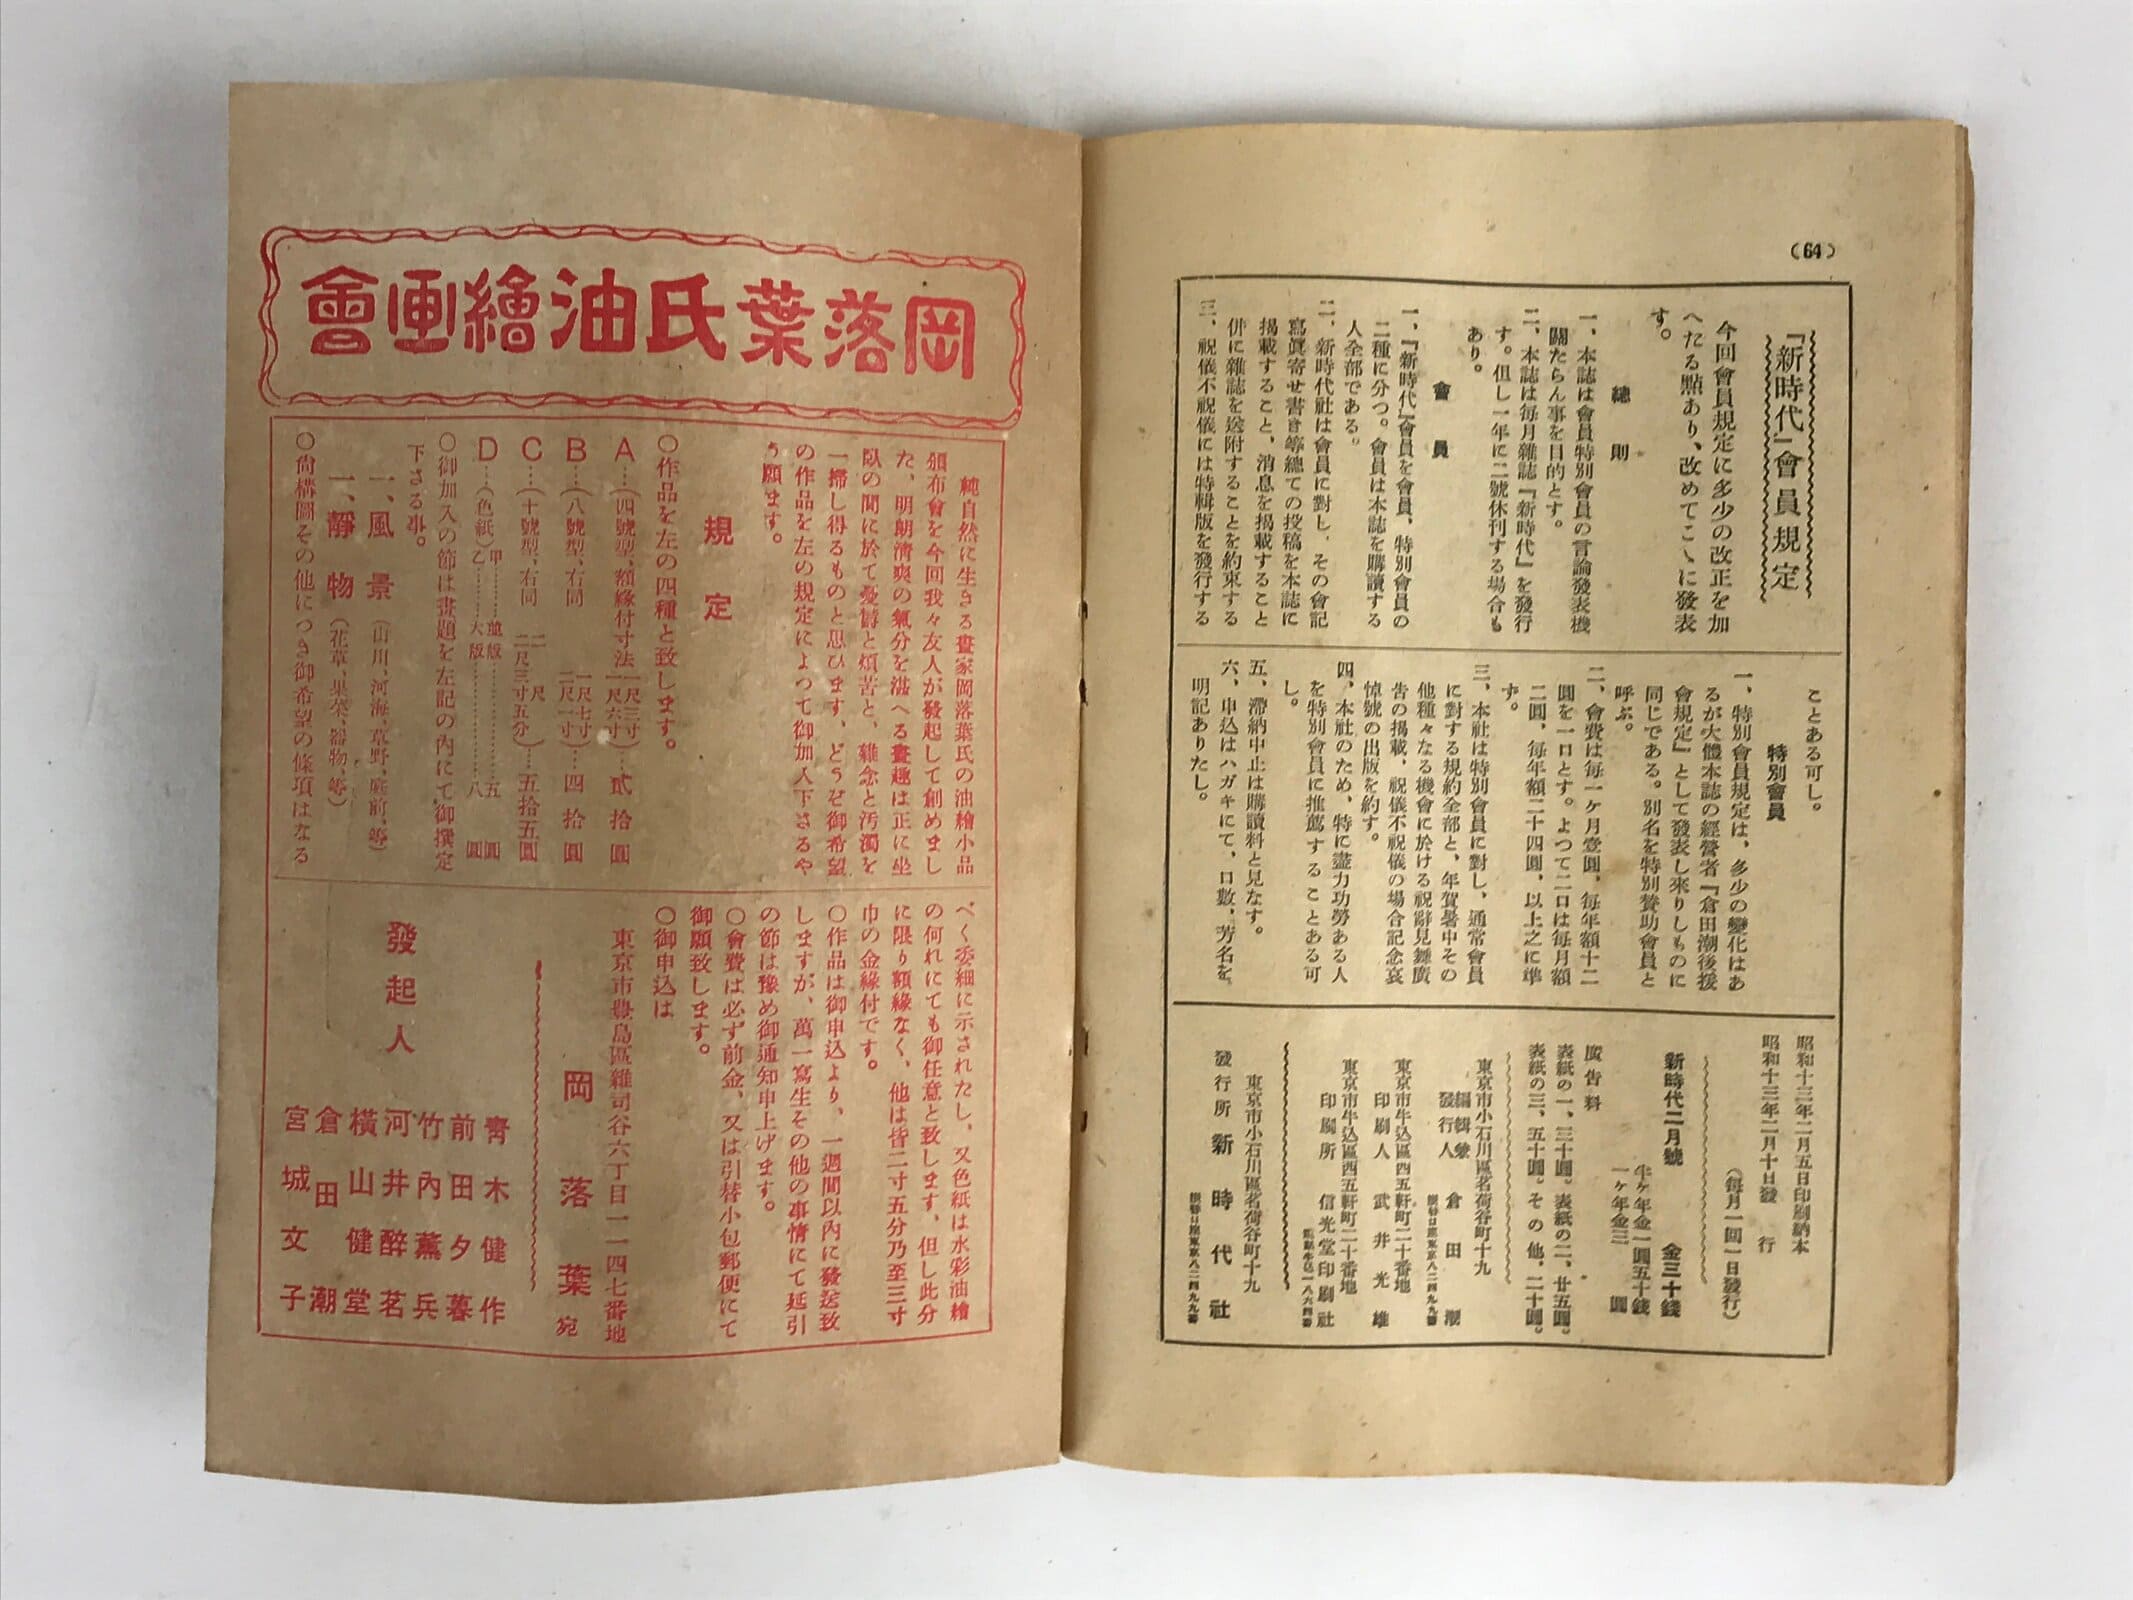 (64)
『新時代』會員規定
今回會員規定に多少の改正を加
へたる點あり、改めてこゝに發表
す。
總則
一、本誌は會員特別會員の言論發表機
關たらん事を目的とす。
二、本誌は毎月雜誌『新時代』を發行
す。但し一年に二號休刊する場合も
あり。
會員
一、『新時代』會員を會員、特別會員の
二種に分つ。會員は本誌を購讀する
人全部である。
二、新時代社は會員に對し、その會記
寫眞寄せ書き等總ての投稿を本誌に
揭載すること、消息を揭載すること
併に雜誌を送附することを約束する
三、祝儀不祝儀には特輯版を發行する
ことある可し。
特別會員
一、特別會員規定は、多少の變化はあ
るが大體本誌の經營者『倉田潮後援
會規定』として發表し來りしものに
同じである。別名を特別贊助會員と
呼ぶ。
二、會費は毎一ヶ月壹圓、毎年額十二
圓を一口とす。よつて二口は毎月額
二圓、毎年額二十四圓、以上之に準
ず。
三、本社は特別會員に對し、通常會員
に對する規約全部と、年賀暑中その
他種々なる機會に於ける祝辭見鍾廣
告の揭載、祝儀不祝儀の場合記念哀
悼號の出版を約す。
四、本社のため、特に盡力功勞ある人
を特別會員に推薦することある可
し。
五、滯納中止は購讀料と見なす。
六、申込はハガキにて、口數、芳名を
明記ありたし。
昭和十三年二月五日印刷納本
昭和十三年二月十日發行
(毎月一回一日發行)
新時代二月號 金三十錢
半ヶ年金一圓五十錢
一ヶ年金三圓
廣告料
表紙の一、三十圓。表紙の二、廿五圓。
表紙の三、五十圓。その他、二十圓。
東京市小石川區茗荷谷町十九
編輯兼發行人 倉田潮
東京市牛込區西五軒町二十番地
印刷人 武井光雄
東京市牛込區西五軒町二十番地
印刷所 信光堂印刷社
東京市小石川區茗荷谷町十九
發行所 新時代社
岡落葉氏油繪画會
純自然に生きる畫家岡落葉氏の油繪小品
頒布會を今回我々友人が發起して創めまし
た、明朗淸爽の氣分を湛へる畫趣は正に坐
臥の間に於て憂鬱と煩苦と、雜念と汚濁を
一掃し得るものと思ひます、どうぞ御希望
の作品を左の規定によつて御加入下さるや
う願ます。
規定
〇作品を左の四種と致します。
A…(四號型、額緣付寸法一尺三寸一尺六寸)…貳拾圓
B…(八號型、右同 一尺七寸二尺一寸)…四拾圓
C…(十號型、右同 二尺二尺三寸五分)…五拾五圓
D…(色紙)甲………並版………五圓
乙………大版………八圓
〇御加入の節は畫題を左記の內にて御撰定
下さる事。
一、風景(山川、河海、草野、庭前、等)
一、靜物(花草、果菜、器物、等)
〇尙構圖その他につき御希望の條項はなる
べく委細に示されたし、又色紙は水彩油繪
の何れにても御任意と致します、但し此分
に限り額緣なく、他は皆二寸五分乃至三寸
巾の金緣付です。
〇作品は御申込より、一週間以內に發送致
しますが、萬一寫生その他の事情にて延引
の節は豫め御通知申上げます。
〇會費は必ず前金、又は引替小包郵便にて
御願致します。
〇御申込は
東京市豊島區雜司谷六丁目一一四七番地
岡落葉宛
發起人
靑木健作
前田夕暮
竹內薰兵
河井醉茗
橫山健堂
倉田潮
宮城文子